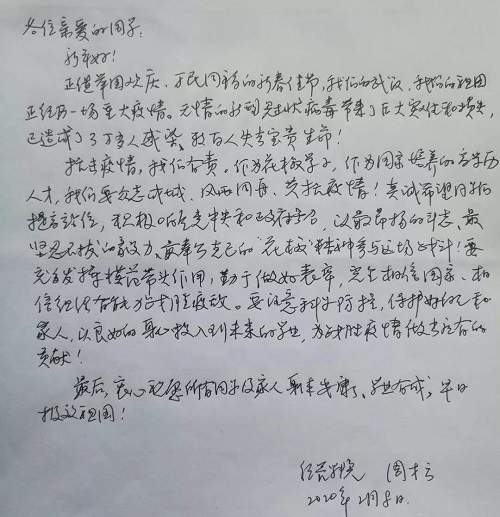 各位亲爱的同学:
新年好!
正值举国欢庆、万民同福的新春佳节,我们的武汉,我们的祖国
正经历一场重大疫情。无情的新型冠状病毒带来了巨大灾难和损失,
已造成了3万多人感染,数百人失去宝贵生命!
抗击疫情,我们有责。作为花椒学子,作为国家培养的高学历
人才,我们要众志成城、风雨同舟、共抗疫情!真诚希望同学们
提高站位,积极响应党中央和政府号召,以最昂扬的斗志、最
坚忍不拔的毅力、最奉公克己的"花椒"精神参与这场战斗!要
充分发挥模范带头作用,勤于做好表率,完全相信国家、相
信组织有能力战胜疫救。要注意科学防控,保护好自己和
家人,以良好的身心投入到未来的学业,为战胜疫情做出应有的
贡献!
最后,衷心祝愿所有同学及家人身体健康、学业有成,早日
报效祖国!
经管学院 周
2020年2月8日